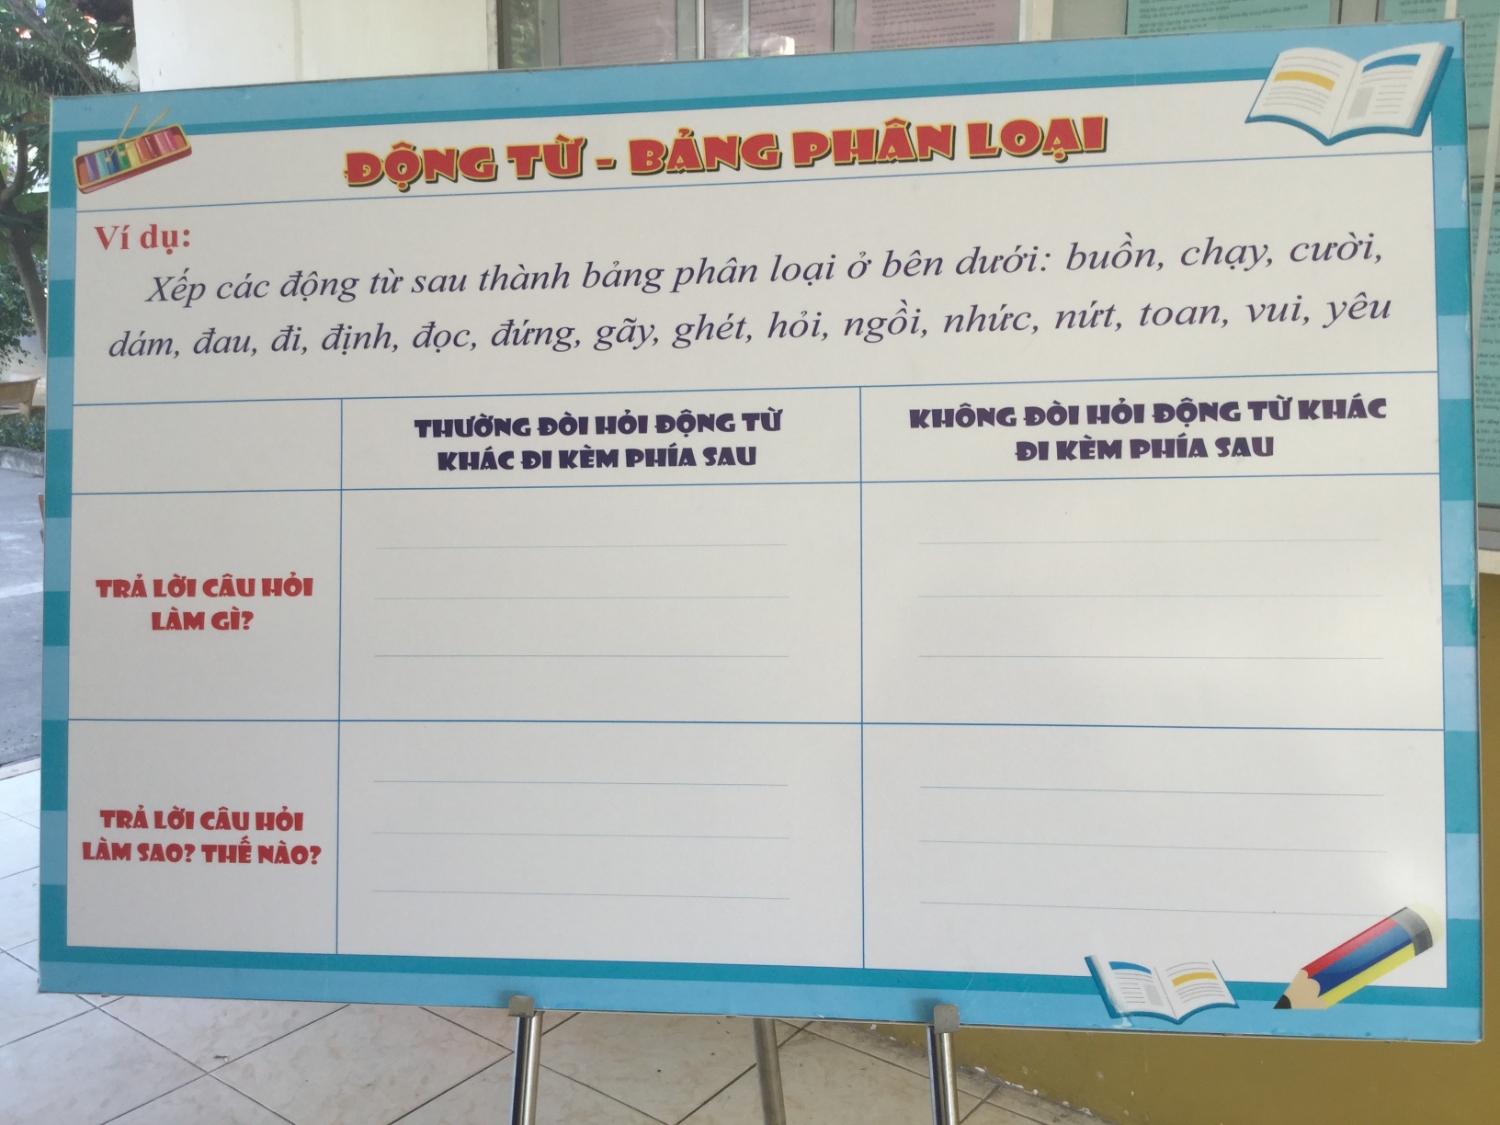 ĐỘNG TỪ - BẢNG PHÂN LOẠI
Ví dụ:
Xếp các động từ sau thành bảng phân loại ở bên dưới: buồn, chạy, cười,
dám, đau, đi, định, đọc, đứng, gãy, ghét, hỏi, ngồi, nhức, nứt, toan, vui, yêu
THƯỜNG ĐÒI HỎI ĐỘNG TỪ
KHÁC ĐI KÈM PHÍA SAU
KHÔNG ĐÒI HỎI ĐỘNG TỪ KHÁC
ĐI KÈM PHÍA SAU
TRẢ LỜI CÂU HỎI
LÀM GÌ?
TRẢ LỜI CÂU HỎI
LÀM SAO? THẾ NÀO?